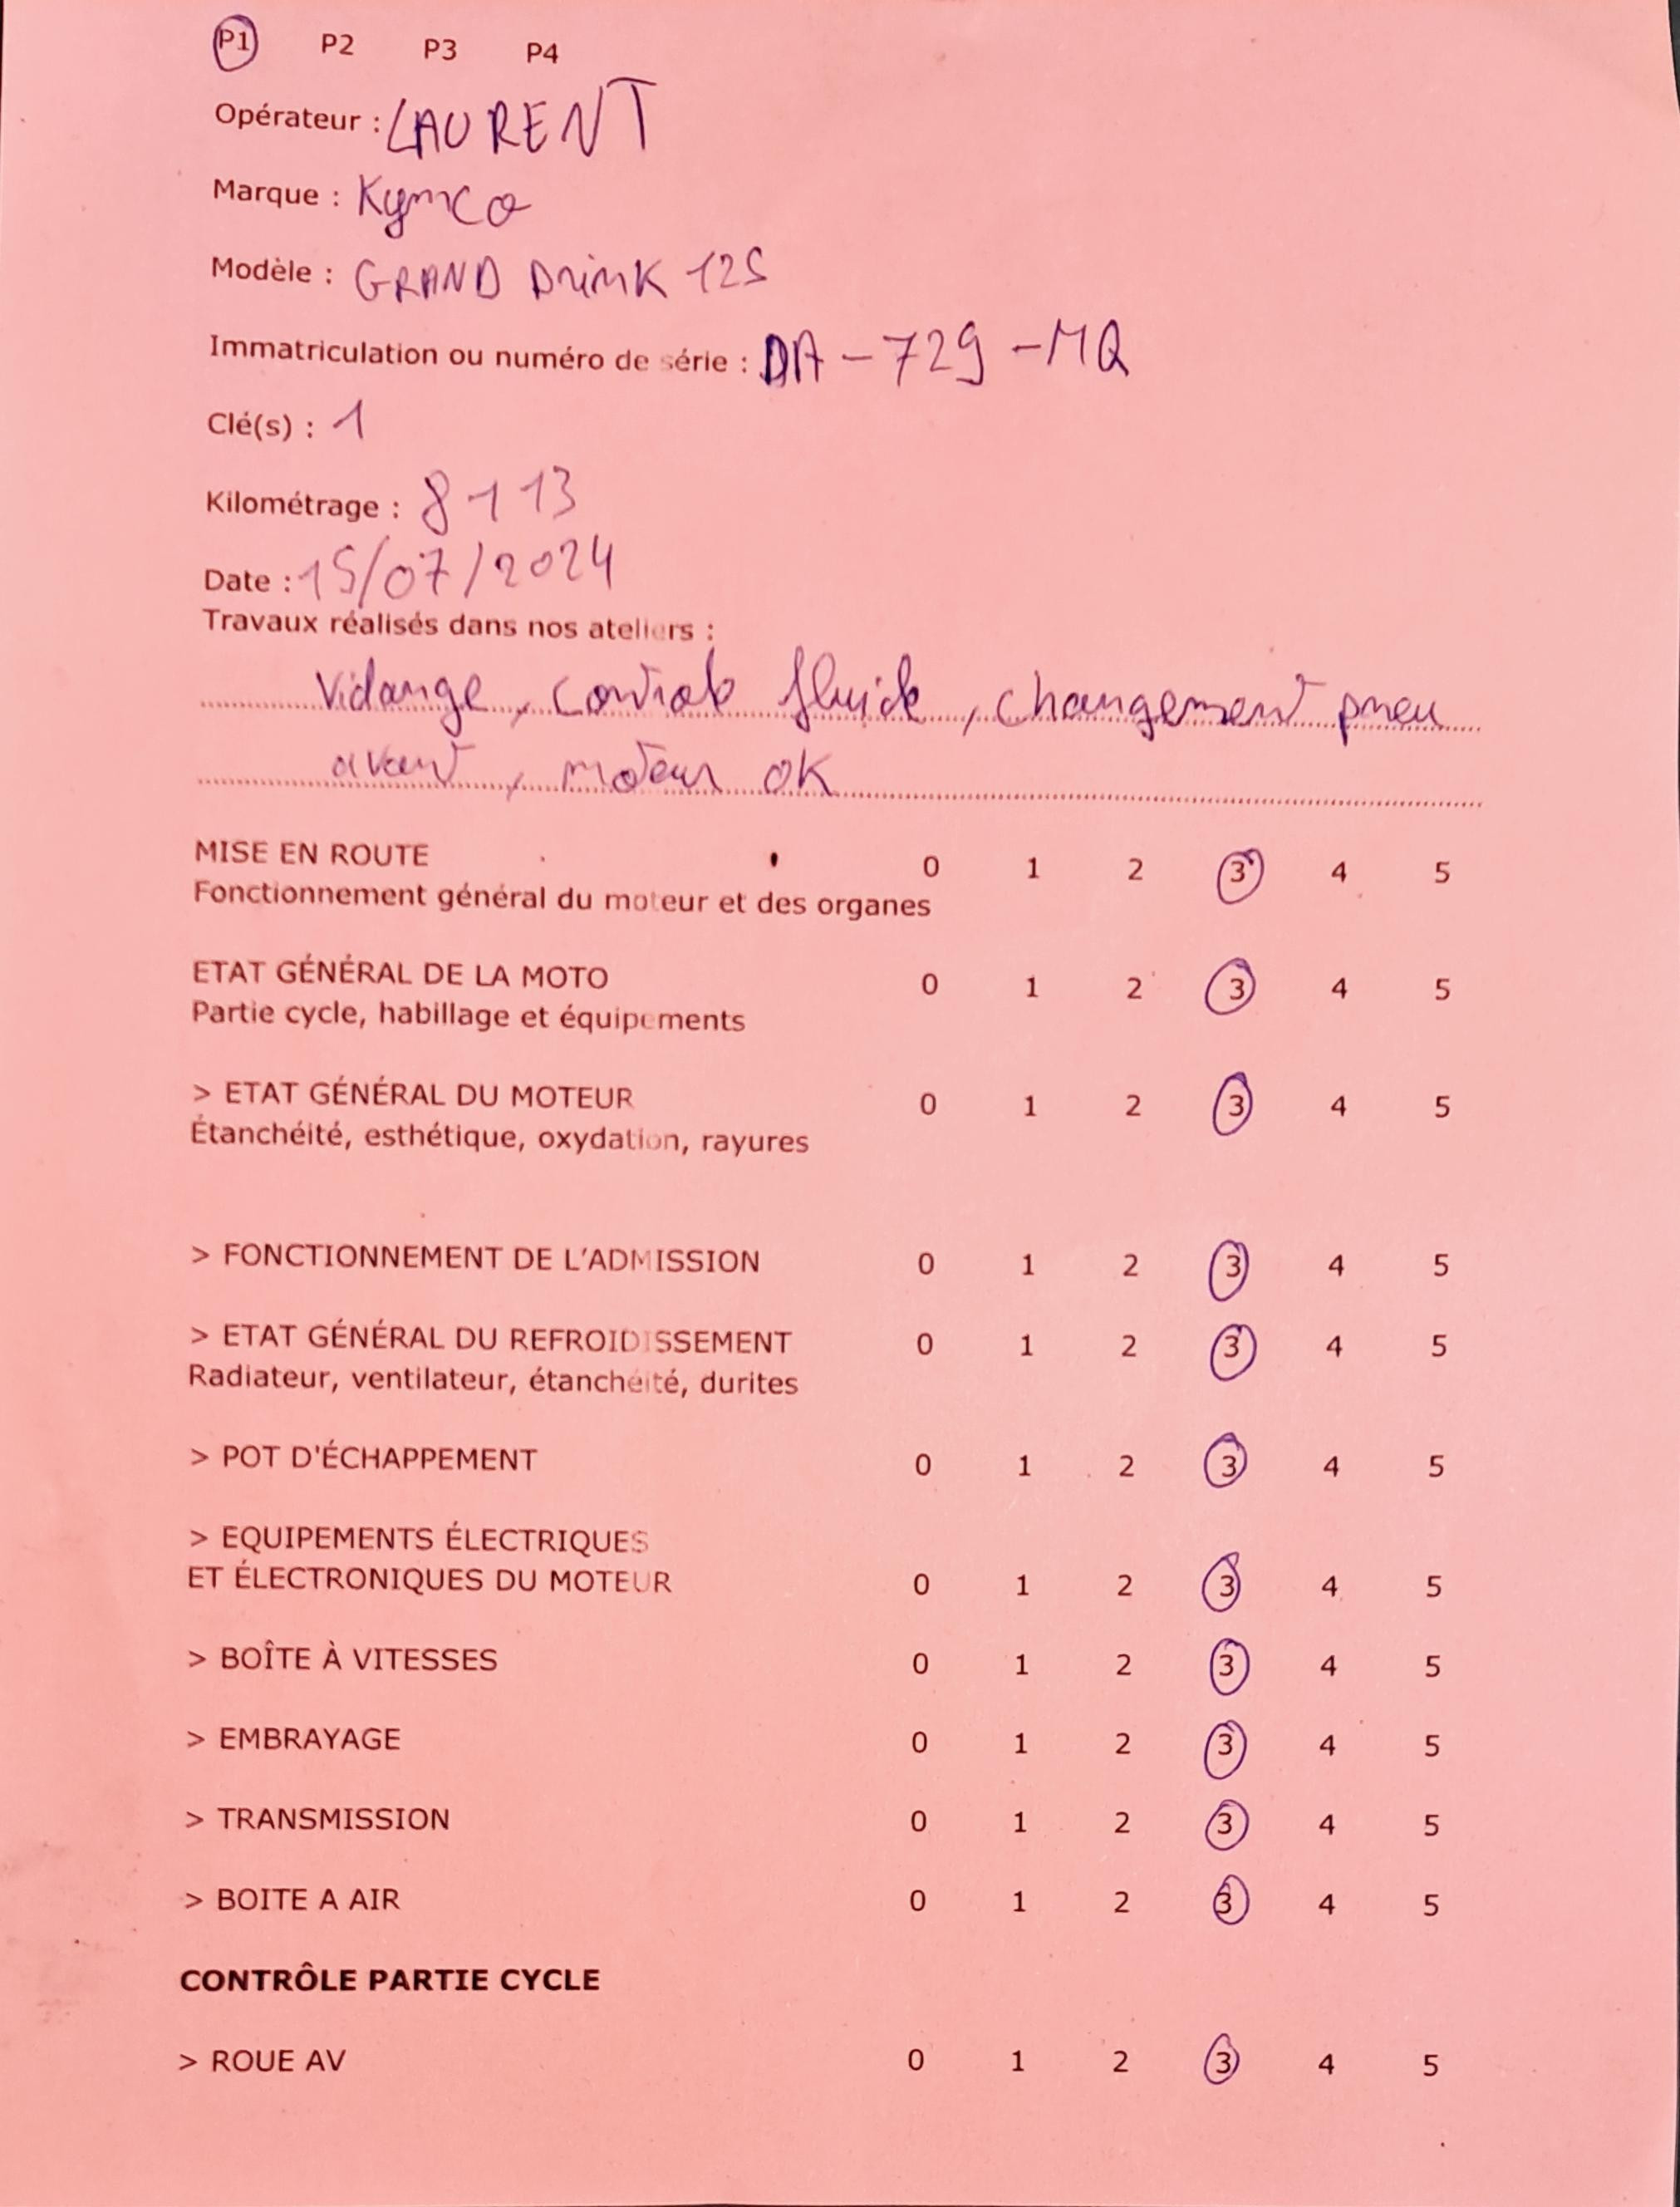 P1 P2 P3 P4
Opérateur : LAURENT
Marque : Kymco
Modèle : GRAND Drink 125
Immatriculation ou numéro de série : DA-729-MQ
Clé(s) : 1
Kilométrage : 8113
Date : 15/07/2024
Travaux réalisés dans nos ateliers :
Vidange, controle fluide, changement pneu
avant, moteur OK
MISE EN ROUTE 0 1 2 3 4 5
Fonctionnement général du moteur et des organes
ETAT GÉNÉRAL DE LA MOTO 0 1 2 3 4 5
Partie cycle, habillage et équipements
> ETAT GÉNÉRAL DU MOTEUR 0 1 2 3 4 5
Étanchéité, esthétique, oxydation, rayures
> FONCTIONNEMENT DE L'ADMISSION 0 1 2 3 4 5
> ETAT GÉNÉRAL DU REFROIDISSEMENT 0 1 2 3 4 5
Radiateur, ventilateur, étanchéité, durites
> POT D'ÉCHAPPEMENT 0 1 2 3 4 5
> EQUIPEMENTS ÉLECTRIQUES
ET ÉLECTRONIQUES DU MOTEUR 0 1 2 3 4 5
> BOÎTE À VITESSES 0 1 2 3 4 5
> EMBRAYAGE 0 1 2 3 4 5
> TRANSMISSION 0 1 2 3 4 5
> BOITE A AIR 0 1 2 3 4 5
CONTRÔLE PARTIE CYCLE
> ROUE AV 0 1 2 3 4 5